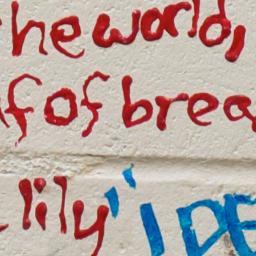 he world,
f of brea
lily" IDE